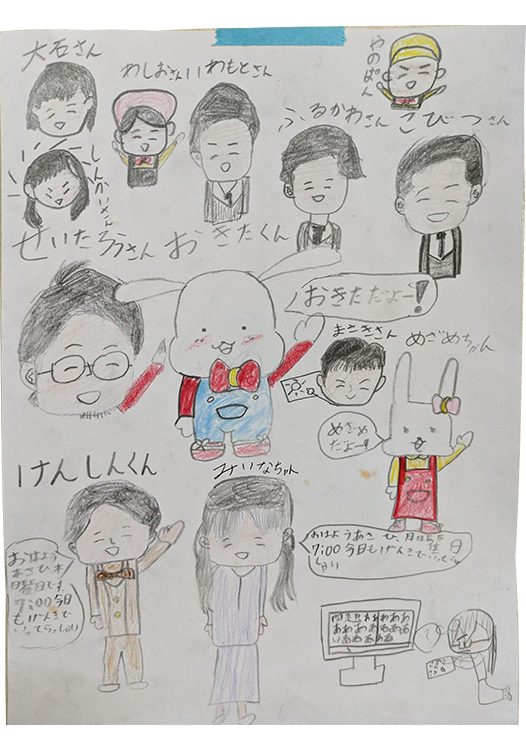 大石さん
わしおさん
いわもとさん
やのぱん
ふるかわさん
こびつさん
しんかいさん
せいたろうさん
おきたくん
おきただよー!
まさきさん
めざめちゃん
めざめ
だよー!!
けんしんくん
みいなちゃん
おはよう
あさひ 木
曜日です
7:00 今日
もげんきで
いってらっしゃい
おはようあさひ、月
7:00 今日もげんきで